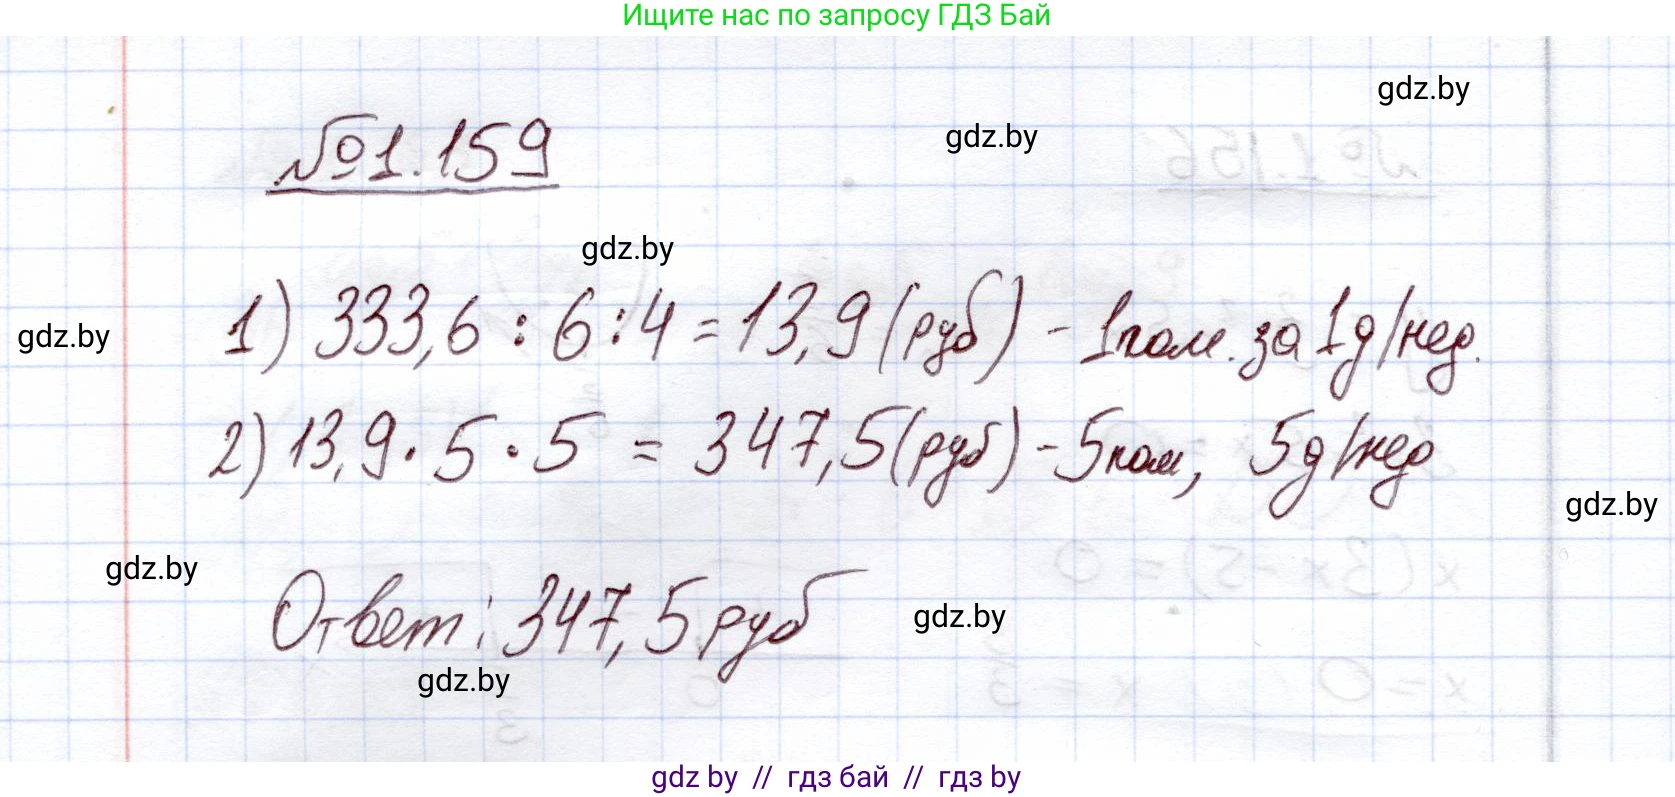 Ищите нас по запросу ГДЗ Бай
gdz.by
№1.159
gdz.by
gdz.by
gdz.by
1) 333,6 : 6 : 4 = 13,9 (руб) - 1пом. за 1д/нед.
2) 13,9 · 5 · 5 = 347,5 (руб) - 5пом, 5д/нед
gdz.by
gdz.by
Ответ: 347,5 руб
gdz.by
gdz.by
gdz by // гдз бай // гдз by